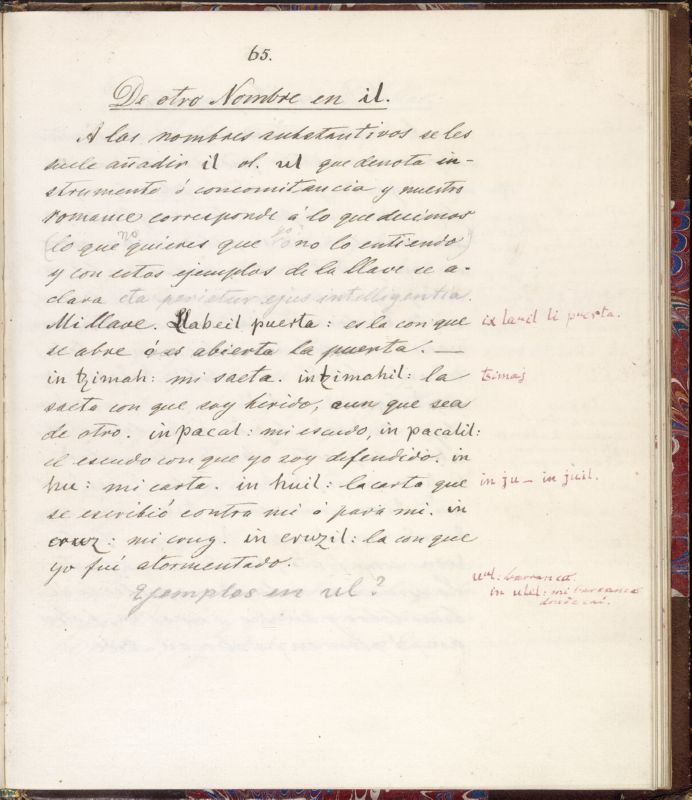 65.
De otro Nombre en il.
A los nombres substantivos se les
suele añadir il ol. ul que denota in-
strumento ó concomitancia y nuestro
romance corresponde á lo que decimos
(lo que no quieres que yo no lo entiendo)
y con estos ejemplos de la llave se a-
clara eta perietur ejus intelligentia.
Mi llave. Llabeil puerta: es la con que
se abre ó es abierta la puerta. —
ix lauil li puerta.
in tzimah: mi saeta. in tzimahil: la
tzimaj
saeta con que soy herido, aun que sea
de otro. in pacal: mi escudo, in pacalil:
el escudo con que yo soy defendido. in
hu: mi carta. in huil: la carta que
in ju — in juil.
se escribió contra mi ó para mi. in
cruz: mi cruz. in cruzil: la con que
yo fuí atormentado.
Ejemplos en ul?
barranca.
in ulul: mi barranca
donde caí.